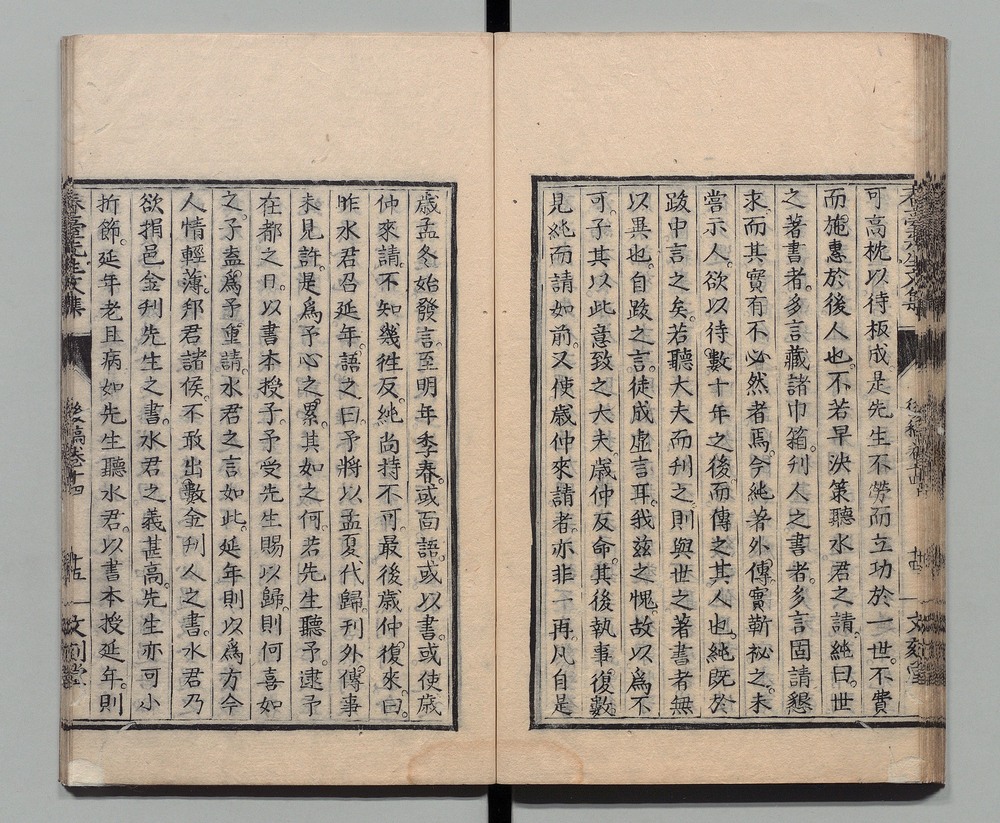 可高枕以待板成是先生不勞而立功於一世不費
而施惠於後人也不若早決策聽水君之請純曰世
之著書者多言藏諸巾箱刊人之書者多言固請懇
求而其實有不必然者焉今純著外傳實靳祕之未
嘗示人欲以待數十年之後而傳之其人也純既於
跋中言之矣若聽大夫而刊之則與世之著書者無
以異也自跋之言徒成虛言耳我茲之愧故以爲不
可子其以此意致之大夫歲仲反命其後執事復數
見純而請如前又使歲仲來請者亦非一再凡自是
歲孟冬始發言至明年季春或面語或以書或使歲
仲來請不知幾往反純尚持不可最後歲仲復來曰
昨水君召延年語之曰予將以孟夏代歸刊外傳事
未見許是爲予心之累其如之何若先生聽予逮予
在都之日以書本授予予受先生賜以歸則何喜如
之子盍爲予重請水君之言如此延年則以爲方今
人情輕薄邦君諸侯不敢出數金刊人之書水君乃
欲捐邑金刊先生之書水君之義甚高先生亦可小
折節延年老且病如先生聽水君以書本授延年則
春臺先生文集
後稿卷十四
十五
文刻堂